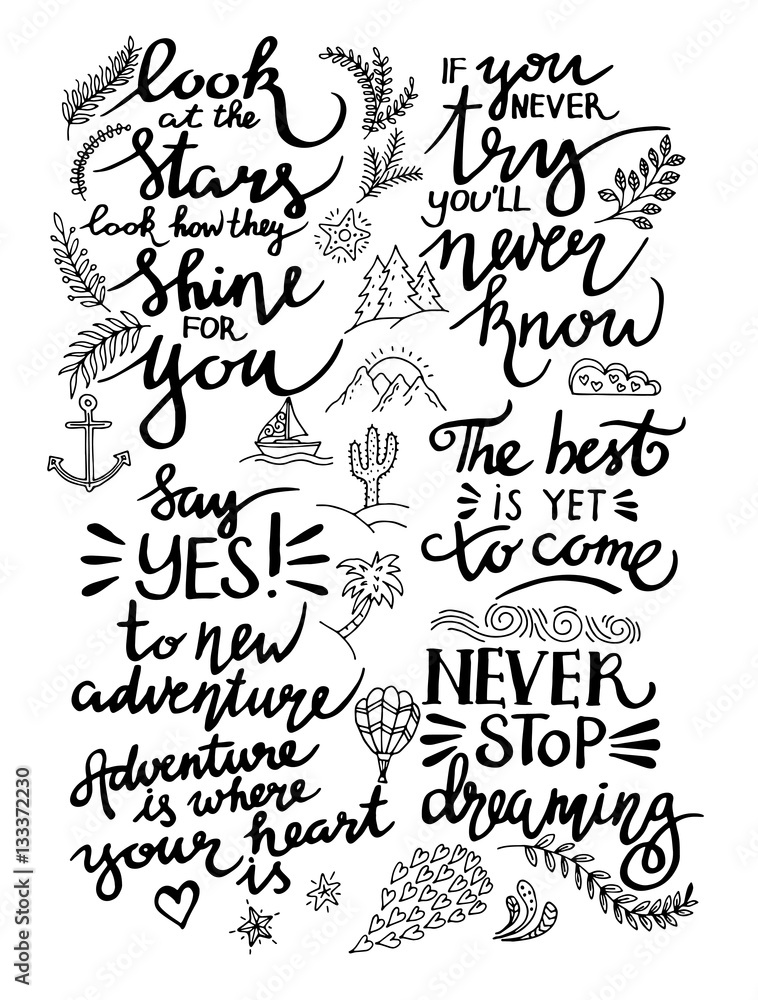 look
at the
Stars
look how they
Shine
FOR
you
Say
YES!
to new
adventure
Adventure
is where
your heart
is
IF you
NEVER
try
YOU'LL
never
know
The best
IS YET
to come
NEVER
STOP
dreaming
Adobe Stock | #133372230